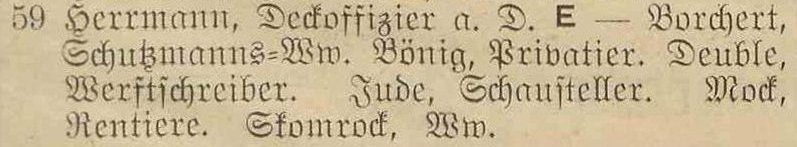 59 Herrmann, Deckoffizier a. D. E — Borchert,
Schutzmanns-Ww. Bönig, Privatier. Deuble,
Werftschreiber. Jude, Schausteller. Mock,
Rentiere. Skomrock, Ww.